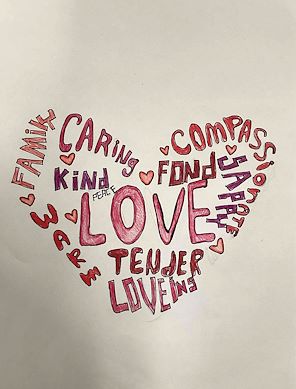 FAMILY
CARING
COMPASSIONATE
KIND
PEACE
FOND
SAPPY
LOVE
WARM
TENDER
LOVEING